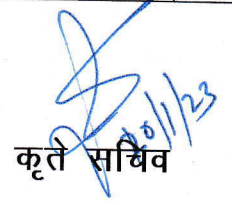 20/1/23
कृते सचिव